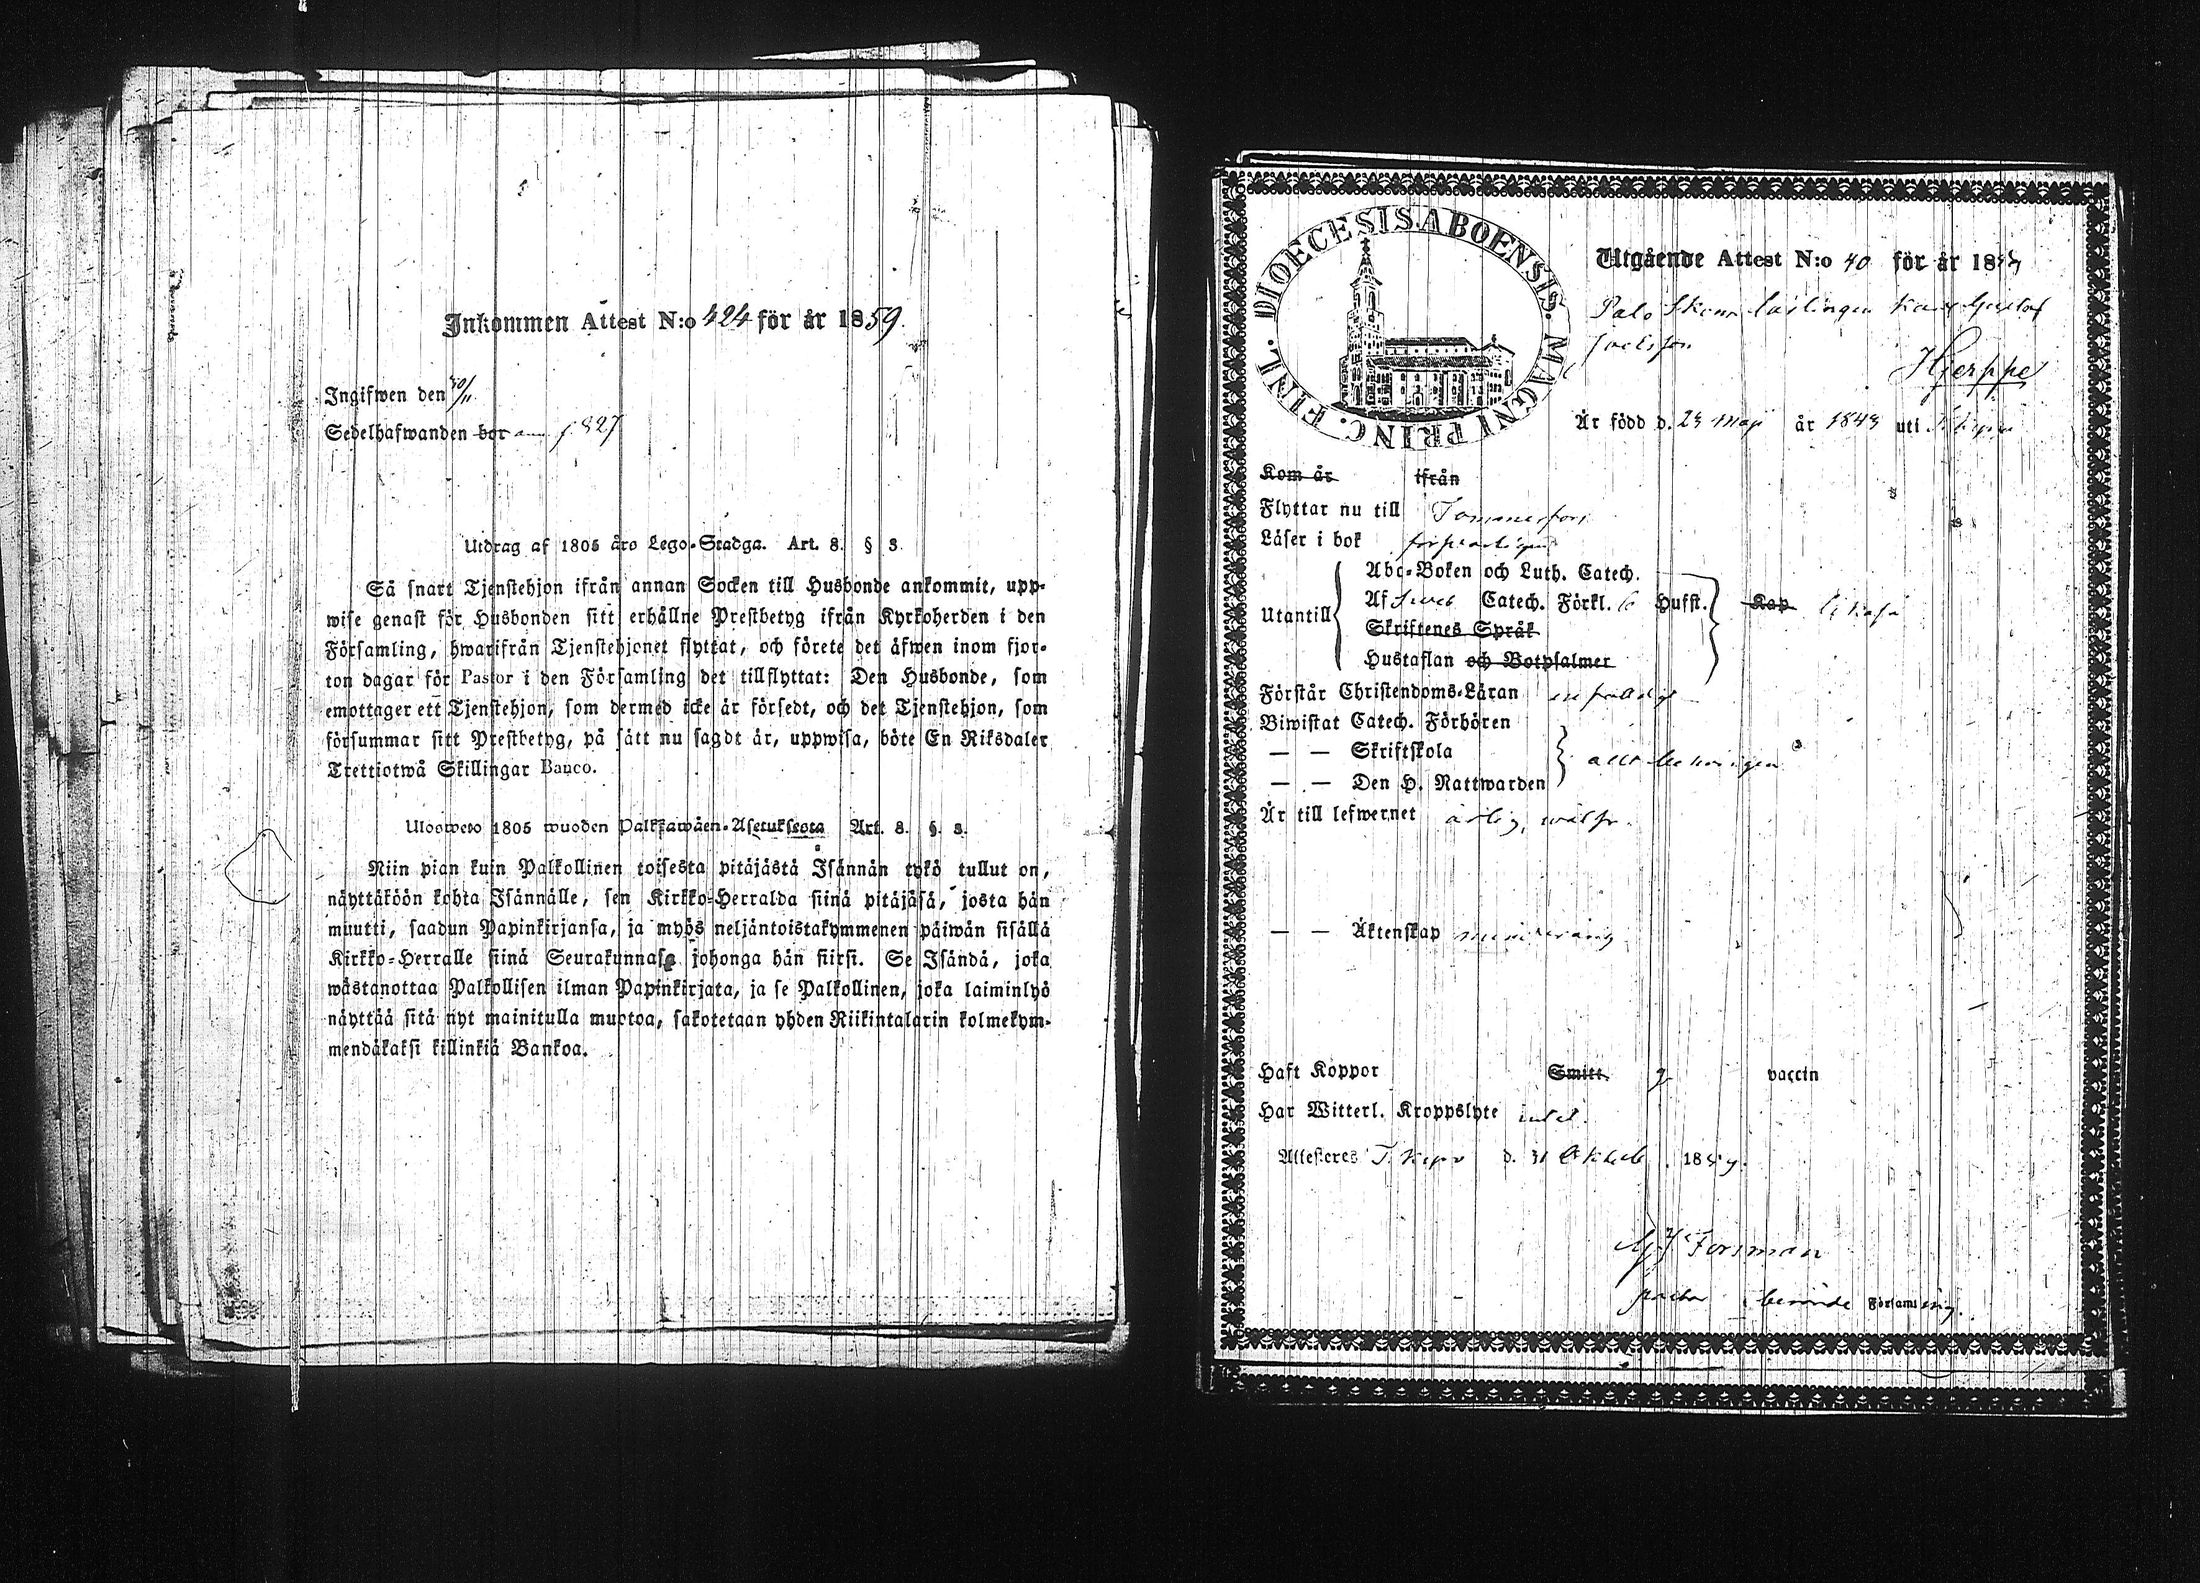 Inkommen Attest N:o 424 för år 1859.
Ingifwen den 30/11
Sedelhafwanden bor ann. f. 827
Utdrag af 1805 års Lego-Stadga. Art. 8. § 3.
Så snart Tjenstehjon ifrån annan Socken till Husbonde ankommit, upp-
wise genast för Husbonden sitt erhållne Prestbetyg ifrån Kyrkoherden i den
Församling, hwarifrån Tjenstehjonet flyttat, och förete det äfwen inom fjor-
ton dagar för Pastor i den Församling det tillflyttat: Den Husbonde, som
emottager ett Tjenstehjon, som dermed icke är försedt, och det Tjenstehjon, som
försummar sitt Prestbetyg, på sätt nu sagdt är, uppwisa, böte En Riksdaler
Trettiotwå Skillingar Banco.
Uloswetö 1805 wuoden Palkkawäen-Asetuksesta Art. 8. §. 3.
Niin pian kuin Palkollinen toisesta pitäjästä Isännän tykö tullut on,
näyttäköön kohta Isännälle, sen Kirkko-Herralda siinä pitäjäsä, josta hän
muutti, saadun Papinkirjansa, ja myös neljäntoistakymmenen päiwän sisällä
Kirkko-Herralle siinä Seurakunnasa johonga hän siirsi. Se Isändä, joka
wästanottaa Palkollisen ilman Papinkirjata, ja se Palkollinen, joka laiminlyö
näyttää sitä nyt mainitulla muotoa, sakotetaan yhden Riikintalarin kolmekym-
mendäkaksi killinkiä Bankoa.
DIOECESIS ABOENSIS MAGNI PRINC. FINL.
Utgående Attest N:o 40 för år 1859
Palo Gustaf
Hjerppe
Är född d. 23 Maji år 1843 uti
Kom år ifrån
Flyttar nu till Tammerfors
Läser i bok
Abc-Boken och Luth. Catech.
Utantill Af Sveb Catech. Förkl. 6 Hufst. Kap
Skriftenes Språk
Hustaflan och Botpsalmer
Förstår Christendoms-Läran enfaldigt
Biwistat Catech. Förhören
— — Skriftskola allt behörigen
— — Den H. Nattwarden
Är till lefwernet ärlig, wälfr.
— — Äktenskap minderårig
Haft Koppor Smitt. g. vaccin
Har Witterl. Kroppslyte intet.
Attesteres d. 31 Oktob. 1859.
Forsman
pastor i berörde Församling.